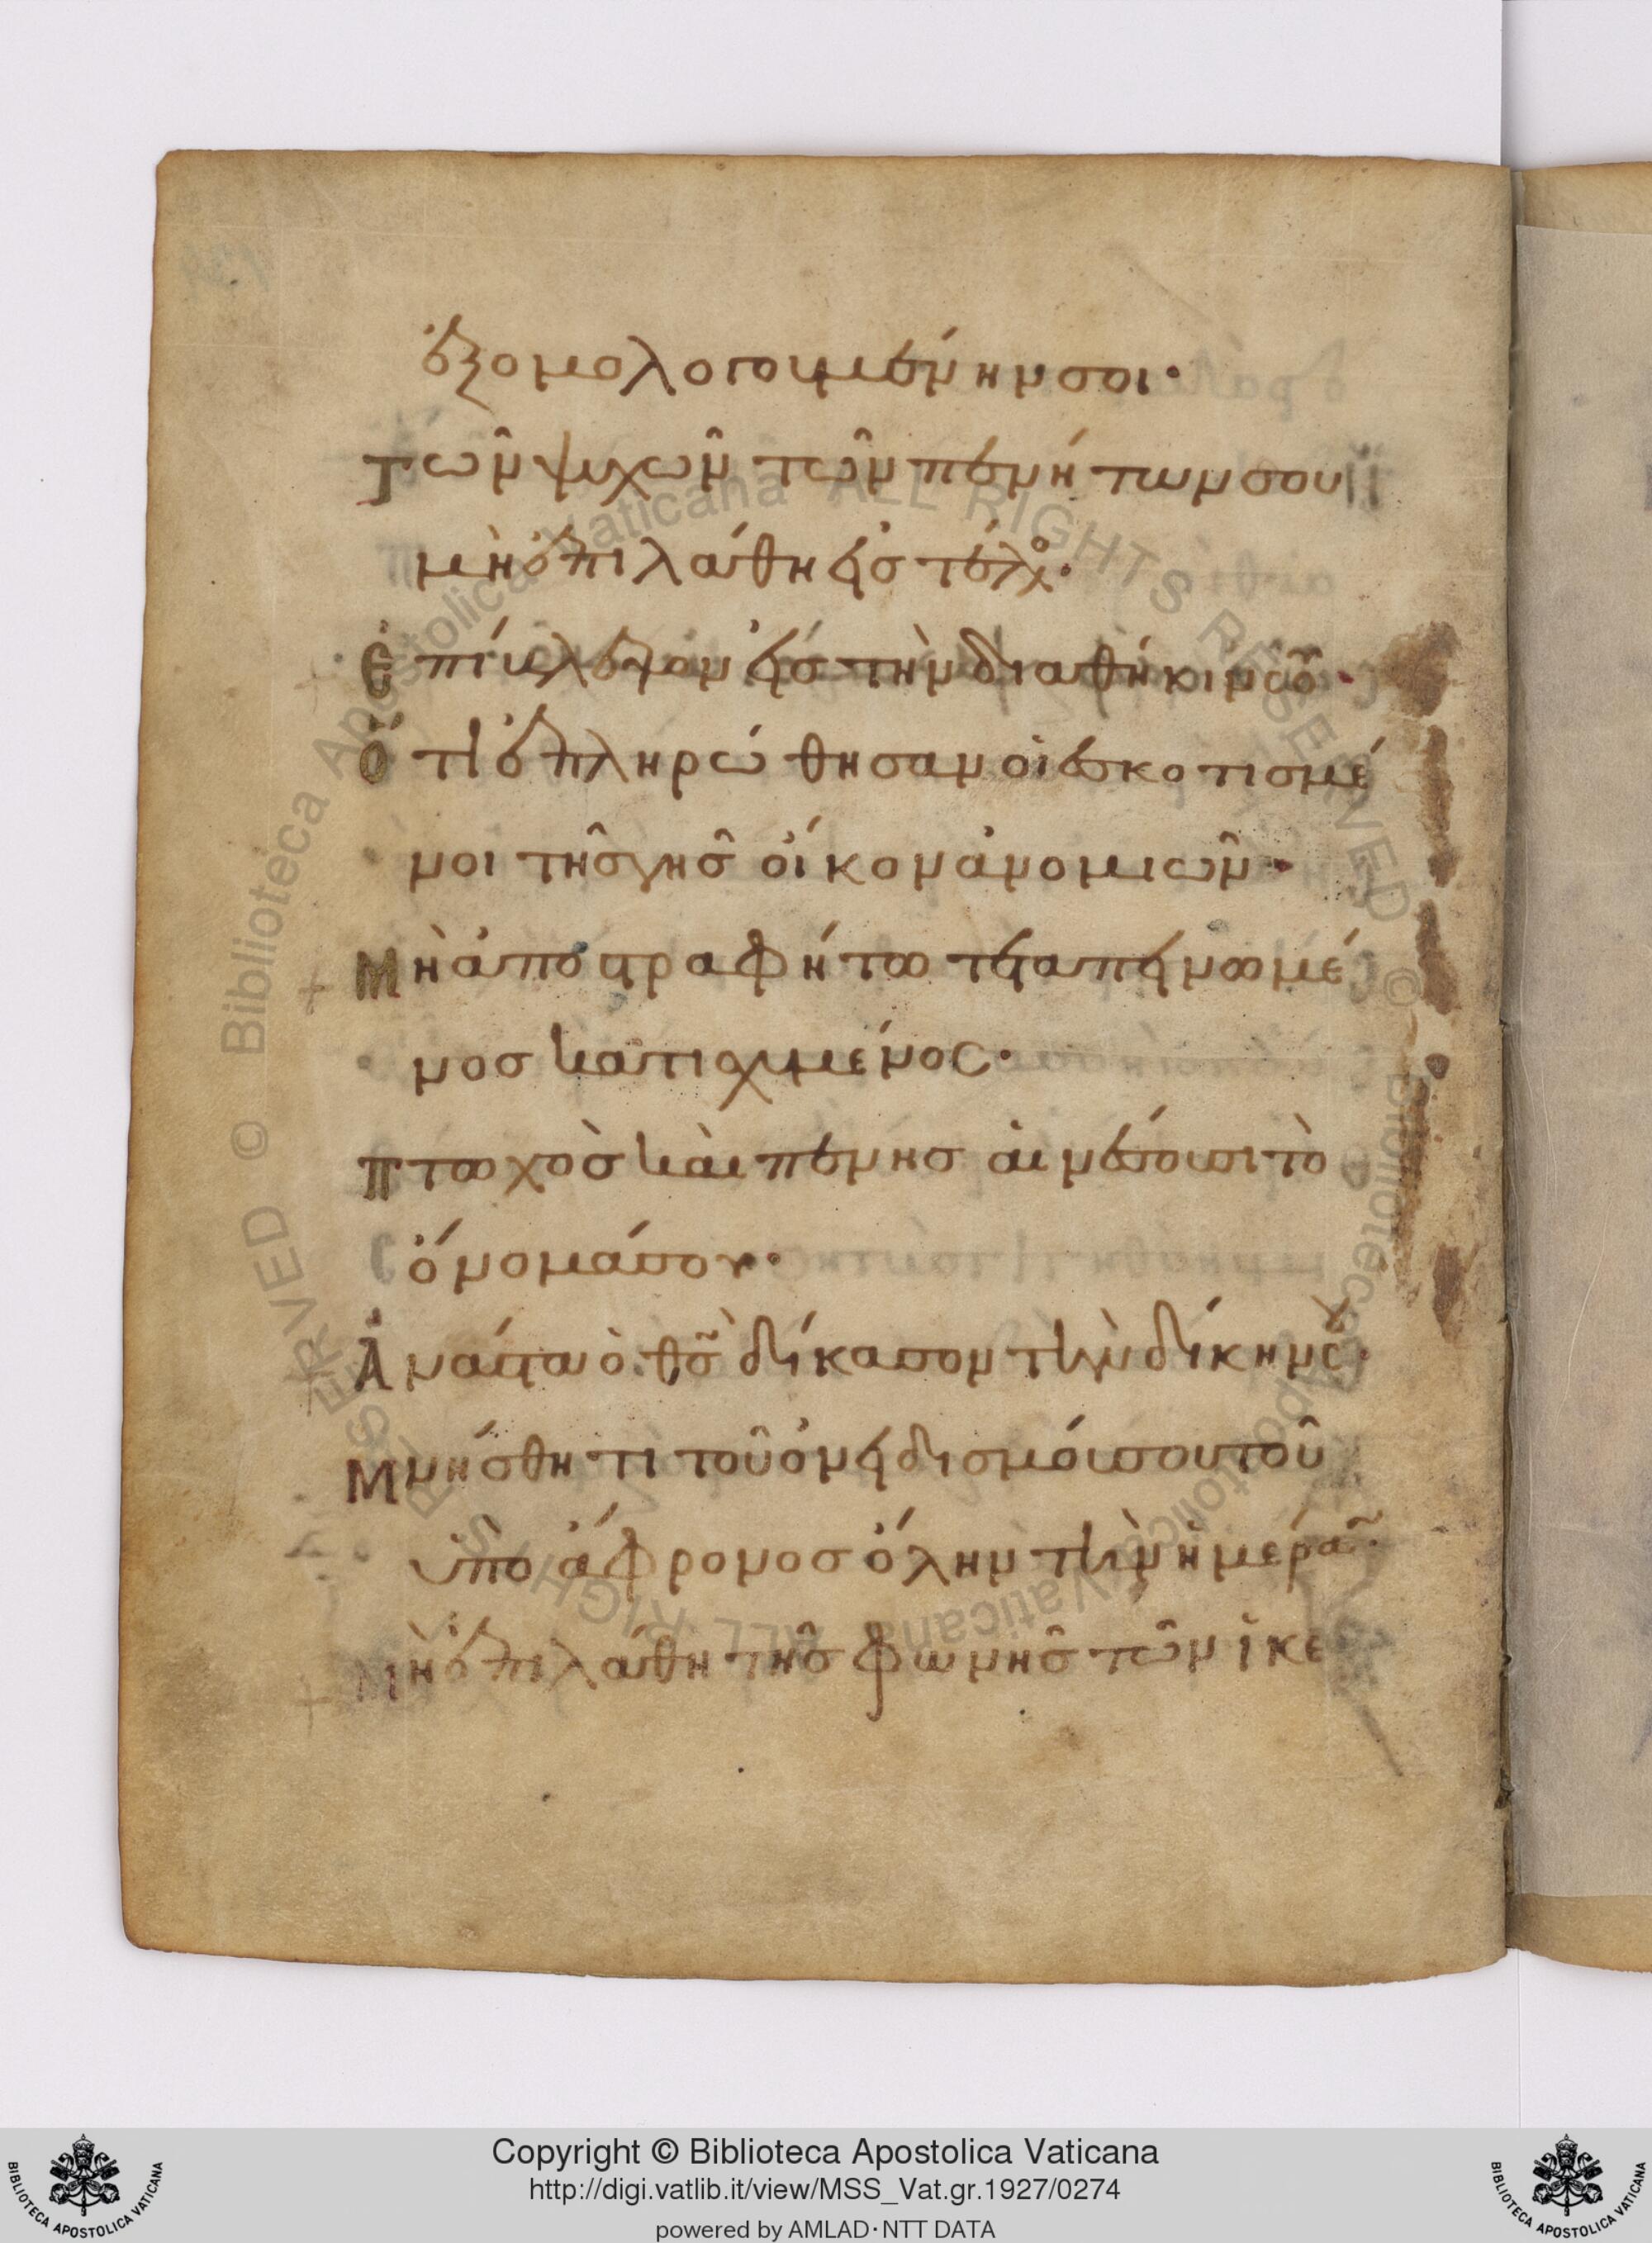 ἐξομολογουμένην σοι·
τῶν ψυχῶν τῶν πενήτων σου
μὴ ἐπιλάθη εἰς τέλο·
Ἐπίβλεψον εἰς τὴν διαθήκιν σοῦ·
Ὅτι ἐπληρώθησαν οἱ ἐσκοτισμέ
νοι τῆς γῆς οἴκον ἀνομιῶν·
Μὴ ἀποστραφήτω τεταπεινωμέ
νος κατισχυμένος·
Πτωχὸς καὶ πένης αἰνέσουσι τὸ
ὄνομά σου·
Ἀνάστα ὁ θς δίκασον τὴν δίκην σου·
Μνήσθητι τοῦ ὀνειδισμόυ σου τοῦ
ὑπο ἄφρονος ὅλην τὴν ἡμέρα·
Μὴ ἐπιλάθη τῆς φωνῆς τῶν ἱκε
© Biblioteca Apostolica Vaticana ALL RIGHTS RESERVED
© Biblioteca Apostolica Vaticana ALL RIGHTS RESERVED
Copyright © Biblioteca Apostolica Vaticana
http://digi.vatlib.it/view/MSS_Vat.gr.1927/0274
powered by AMLAD·NTT DATA
BIBLIOTECA APOSTOLICA VATICANA
BIBLIOTECA APOSTOLICA VATICANA